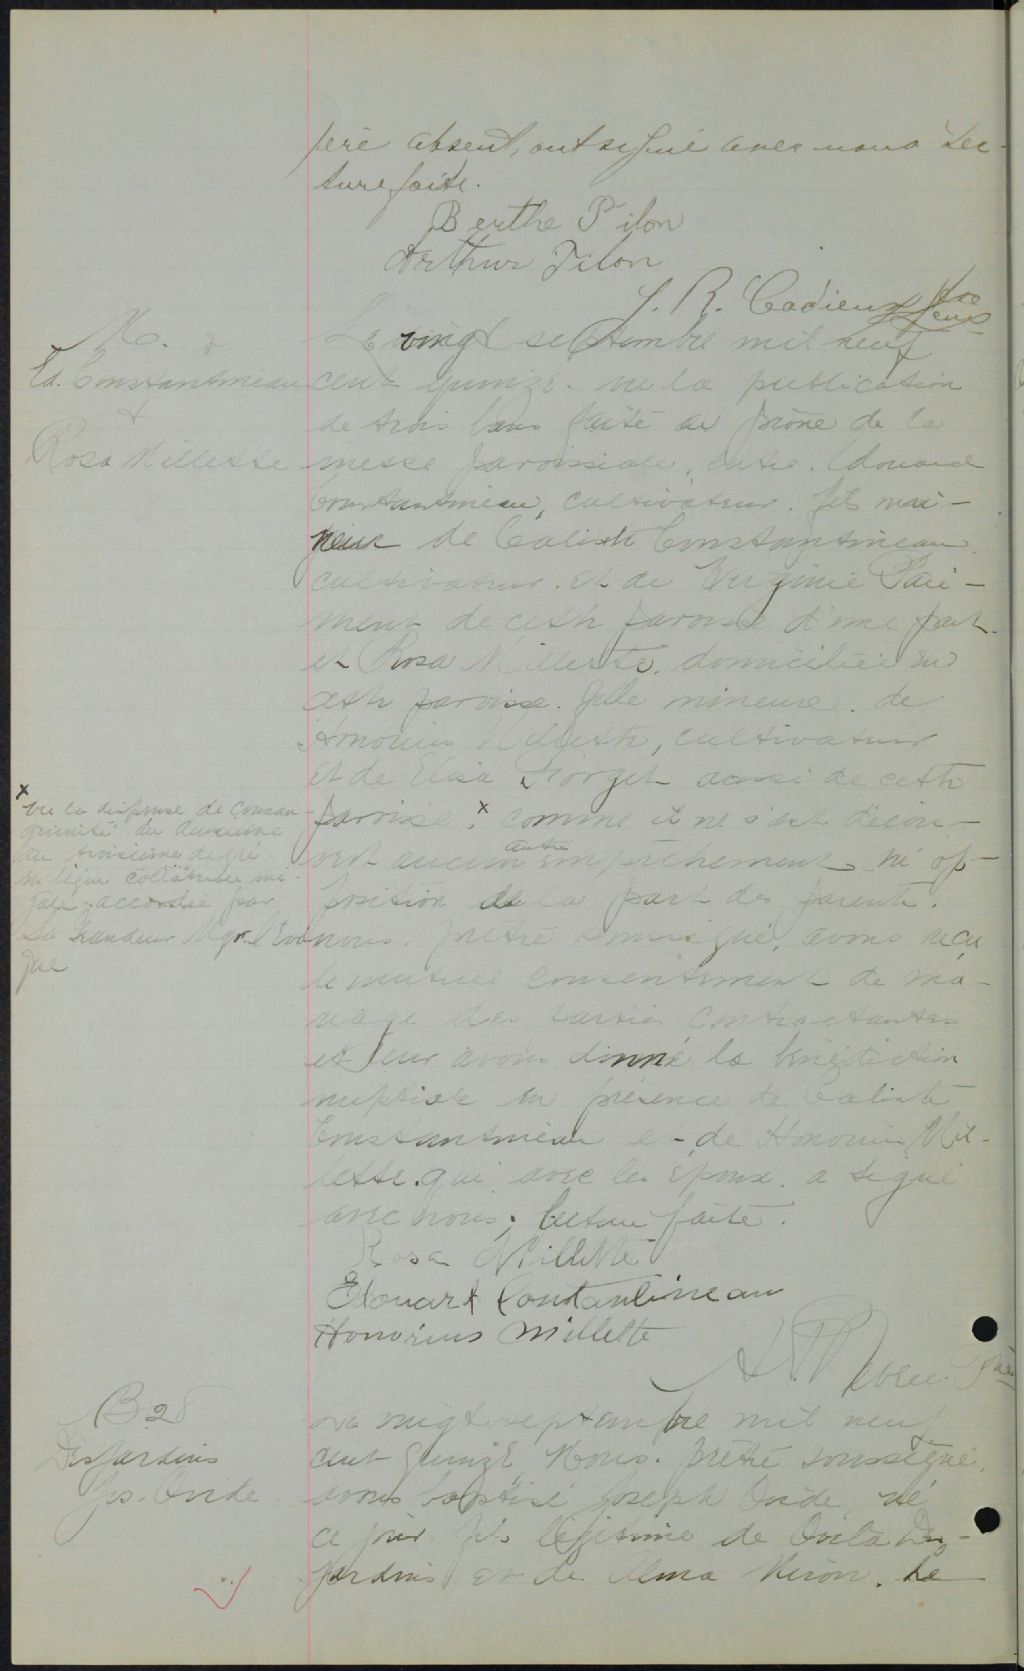 père absent, ont signé avec nous Lec-
ture faite.
Berthe Pilon
Arthur Pilon
J. R. Cadieux ptre
M. 2
Ed. Constantineau
+
Rosa Millette
Le vingt septembre mil neuf
cent quinze. vu la publication
de trois bans faite au prône de la
messe paroissiale, entre Edouard
Constantineau, cultivateur. fils ma-
jeur de Calixte Constantineau
cultivateur. et de Virginie Paie-
ment de cette paroisse d'une part.
et Rosa Millette, domiciliée en
cette paroisse. fille mineure de
Honorius Millette, cultivateur
et de Elisa Forget aussi de cette
paroisse. x comme il ne s'est décou-
vert aucun autre empêchement ni op-
position de la part des parents.
nous. prêtre soussigné, avons reçu
le mutuel consentement de ma-
riage des parties contractantes
et leur avons donné la bénédiction
nuptiale en présence de Calixte
Constantineau e - de Honorius Mil-
lette. qui avec les époux. a signé
avec nous; lecture faite.
x
vu la dispense de consan
guinité du deuxième
au troisième degré.
en ligne collatérale iné-
gale accordée par
Sa Grandeur Mgr. l'Evê
que
Rosa Millette
Edouard Constantineau
Honorius Millette
B 28
Desjardins
Jos. Ovide
Le vingt septembre mil neuf
cent quinze Nous. prêtre soussigné,
avons baptisé Joseph Ovide né
ce jour fils légitime de Ovila Des-
jardins et de Alma Miron. Le